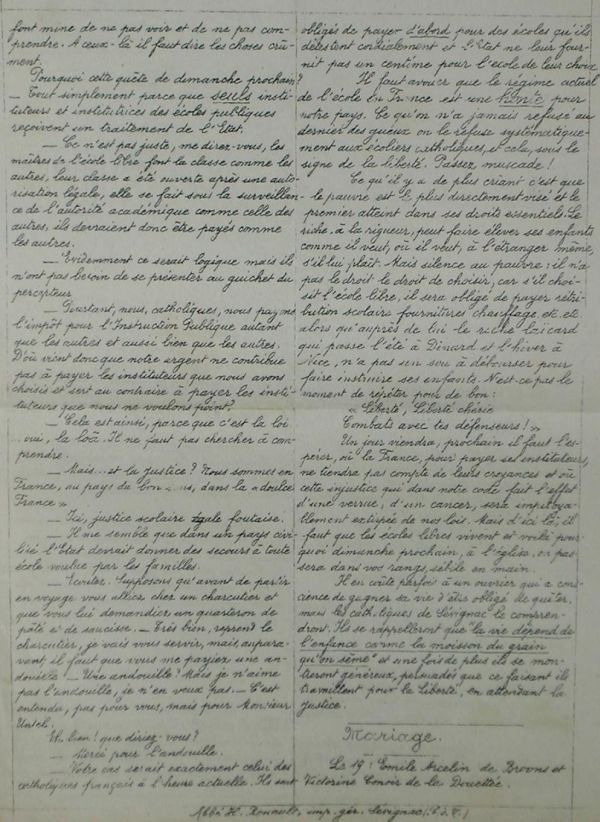 font mine de ne pas voir et de ne pas com-
prendre. A ceux-là il faut dire les choses crû-
ment.
Pourquoi cette quête de dimanche prochain?
_ Tout simplement parce que seuls insti-
tuteurs et institutrices des écoles publiques
reçoivent un traitement de l'Etat.
_ Ce n'est pas juste, me direz-vous, les
maîtres de l'école libre font la classe comme les
autres, leur classe a été ouverte après une auto-
risation légale, elle se fait sous la surveillan-
ce de l'autorité académique comme celle des
autres, ils devraient donc être payés comme
les autres.
_ Evidemment ce serait logique mais ils
n'ont pas besoin de se présenter au guichet du
percepteur
_ Pourtant, nous, catholiques, nous payons
l'impôt pour l'Instruction Publique autant
que les autres et aussi bien que les autres.
D'où vient donc que notre argent ne contribue
pas à payer les instituteurs que nous avons
choisis et sert au contraire à payer les insti-
tuteurs que nous ne voulons point?
_ Cela est ainsi, parce que c'est la loi
oui, la loâ. Il ne faut pas chercher à com-
prendre.
_ Mais... et la justice? Nous sommes en
France, au pays du bon sens, dans la «douce
France»
_ Ici, justice scolaire égale foutaise.
_ Il me semble que dans un pays civi-
lisé l'Etat devrait donner des secours à toute
école voulue par les familles.
_ Ecoutez. Supposons qu'avant de partir
en voyage vous alliez chez un charcutier et
que vous lui demandiez un quarteron de
pâté et de saucisse. _ Très bien, reprend le
charcutier, je vais vous servir, mais aupara-
vant il faut que vous me payiez une an-
douille _ Une andouille? Mais je n'aime
pas l'andouille, je n'en veux pas. _ C'est
entendu, pas pour vous, mais pour Monsieur
Untel.
Eh bien! que diriez-vous?
_ Merci pour l'andouille.
_ Votre cas serait exactement celui des
catholiques français à l'heure actuelle. Ils sont
obligés de payer d'abord pour des écoles qu'ils
détestent cordialement et l'Etat ne leur four-
nit pas un centime pour l'école de leur choix
Il faut avouer que le régime actuel
de l'école en France est une honte pour
notre pays. Ce qu'on n'a jamais refusé au
dernier des gueux on le refuse systématique-
ment aux écoliers catholiques, et cela, sous le
signe de la liberté. Passez muscade!
Ce qu'il y a de plus criant c'est que
le pauvre est le plus directement visé et le
premier atteint dans ses droits essentiels. Le
riche, à la rigueur, peut faire élever ses enfants
comme il veut, où il veut, à l'étranger même,
s'il lui plaît. Mais silence au pauvre: il n'a
pas le droit le droit de choisir, car s'il choi-
sit l'école libre, il sera obligé de payer rétri-
bution scolaire fournitures chauffage etc. etc.
alors qu'auprès de lui le riche laïcard
qui passe l'été à Dinard et l'hiver à
Nice, n'a pas un sou à débourser pour
faire instruire ses enfants. N'est-ce pas le
moment de répéter pour de bon:
«Liberté, Liberté chérie
Combats avec tes défenseurs!»
Un jour viendra, prochain il faut l'es-
pérer, où la France, pour payer ses instituteurs,
ne tiendra pas compte de leurs croyances et où
cette injustice qui dans notre code fait l'effet
d'une verrue, d'un cancer, sera impitoya-
blement extirpée de nos lois. Mais d'ici là, il
faut que les écoles libres vivent et voilà pour-
quoi dimanche prochain, à l'église, on pas-
sera dans vos rangs, sébile en main.
Il en coûte parfois à un ouvrier qui a cons-
cience de gagner sa vie d'être obligé de quêter.
mais les catholiques de Sévignac le compren-
dront. Ils se rappelleront que "la vie dépend de
l'enfance comme la moisson du grain
qu'on sème" et une fois de plus ils se mon-
treront généreux, persuadés que ce faisant ils
travaillent pour la Liberté, en attendant la
Justice.
Mariage.
Le 19: Emile Arcelin de Broons et
Victorine
de la
Abbé H. Rouault, imp. gér. Sévignac (C.d.N.)